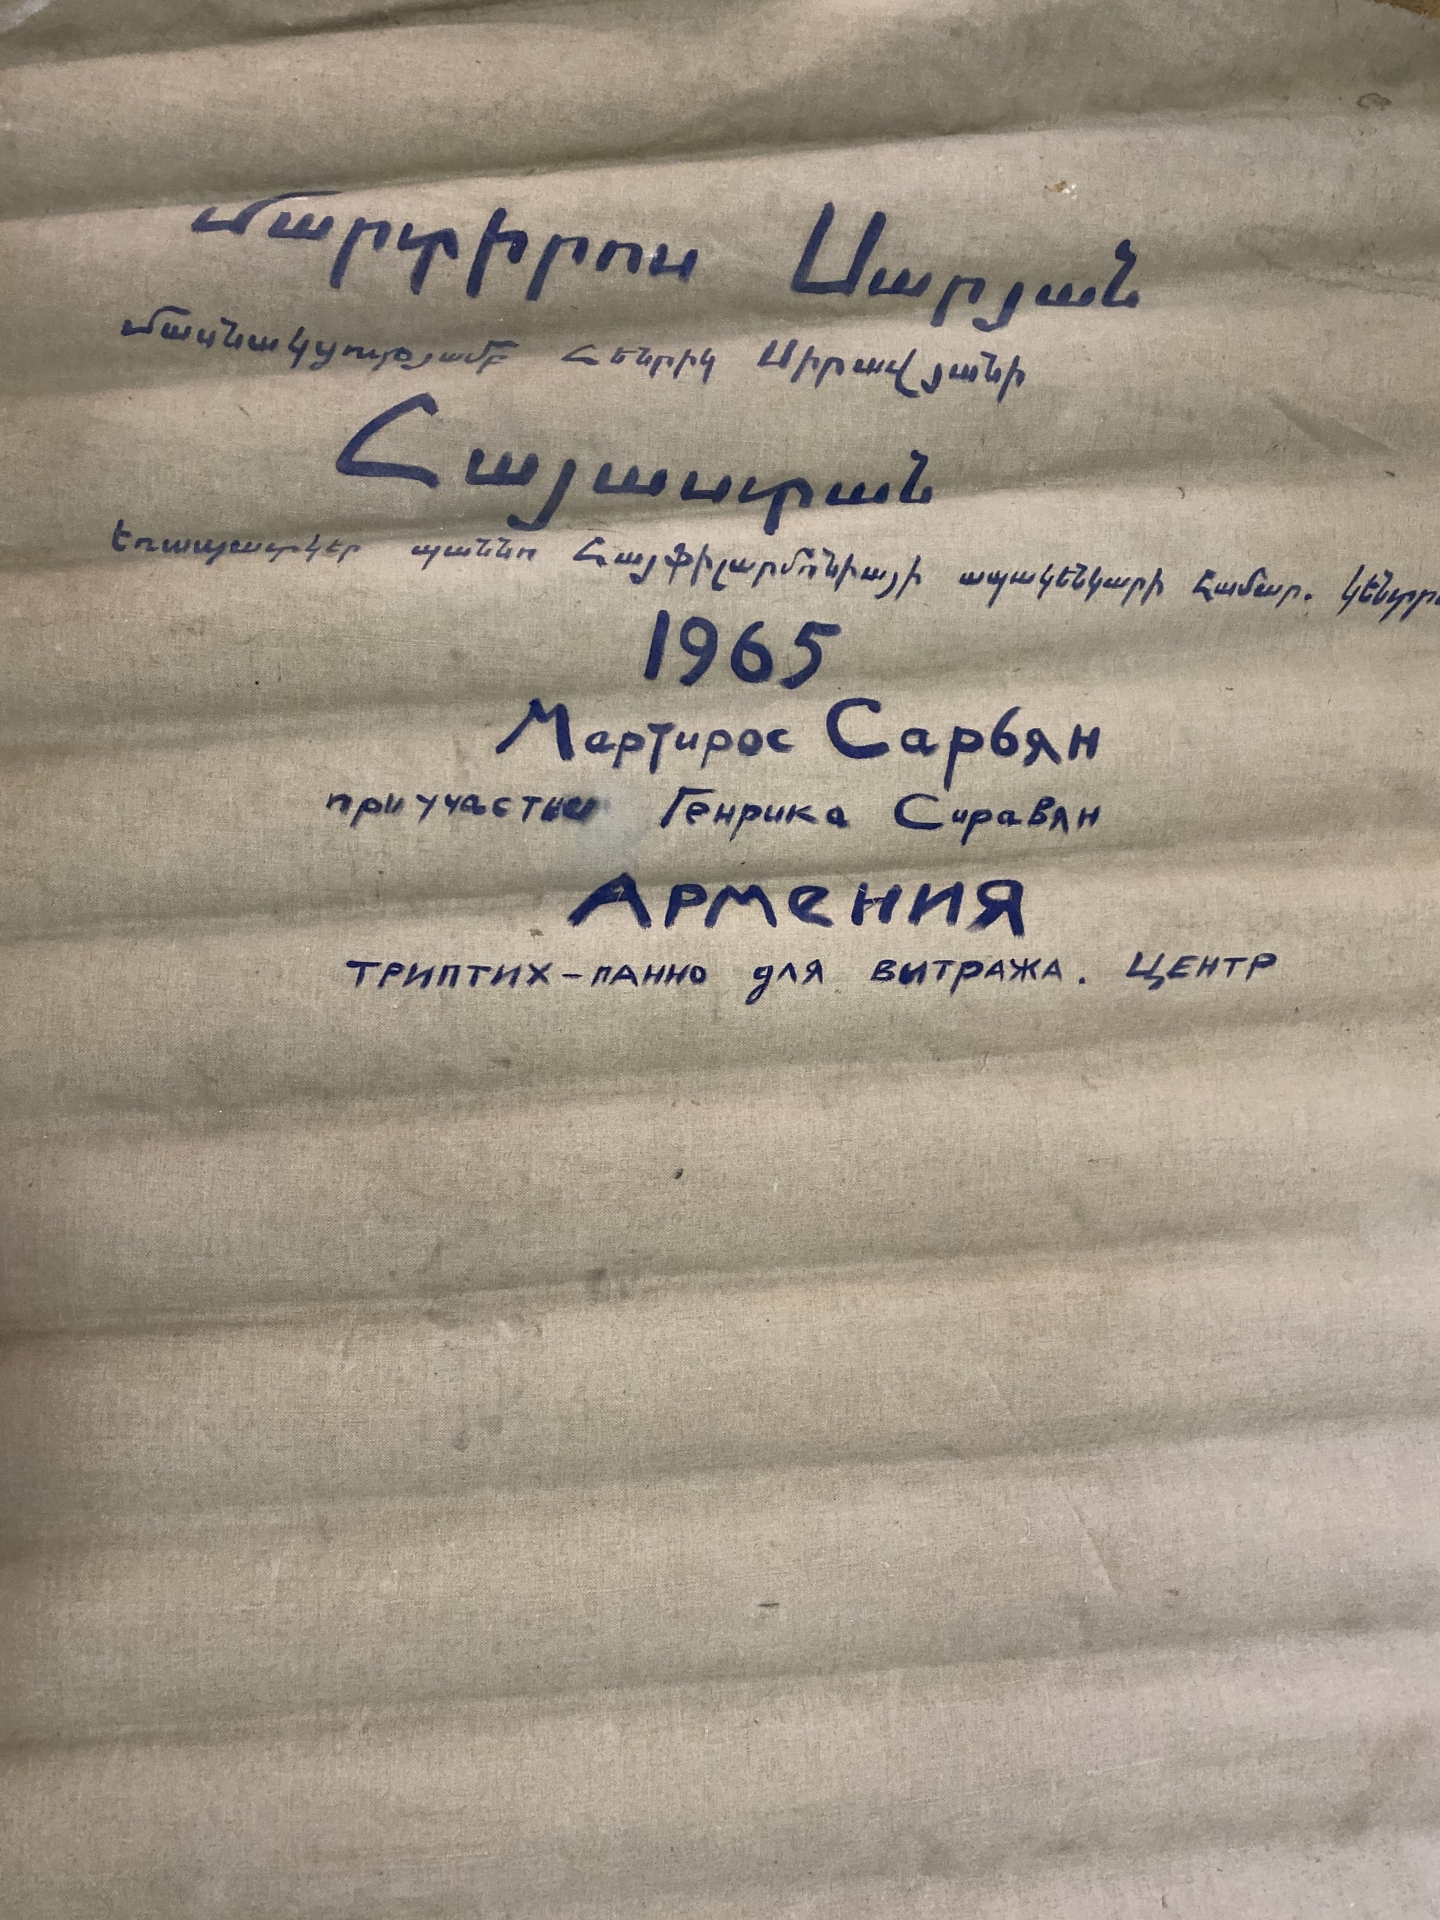 Մարտիրոս Սարյան
մասնակցությամբ Հենրիկ Սիրավյանի
Հայաստան
եռապատկեր պաննո Հայֆիլարմոնիայի ապակենկարի համար. կենտրո
1965
Мартирос Сарьян
при участии Генрика Сиравян
Армения
триптих-панно для витража. Центр